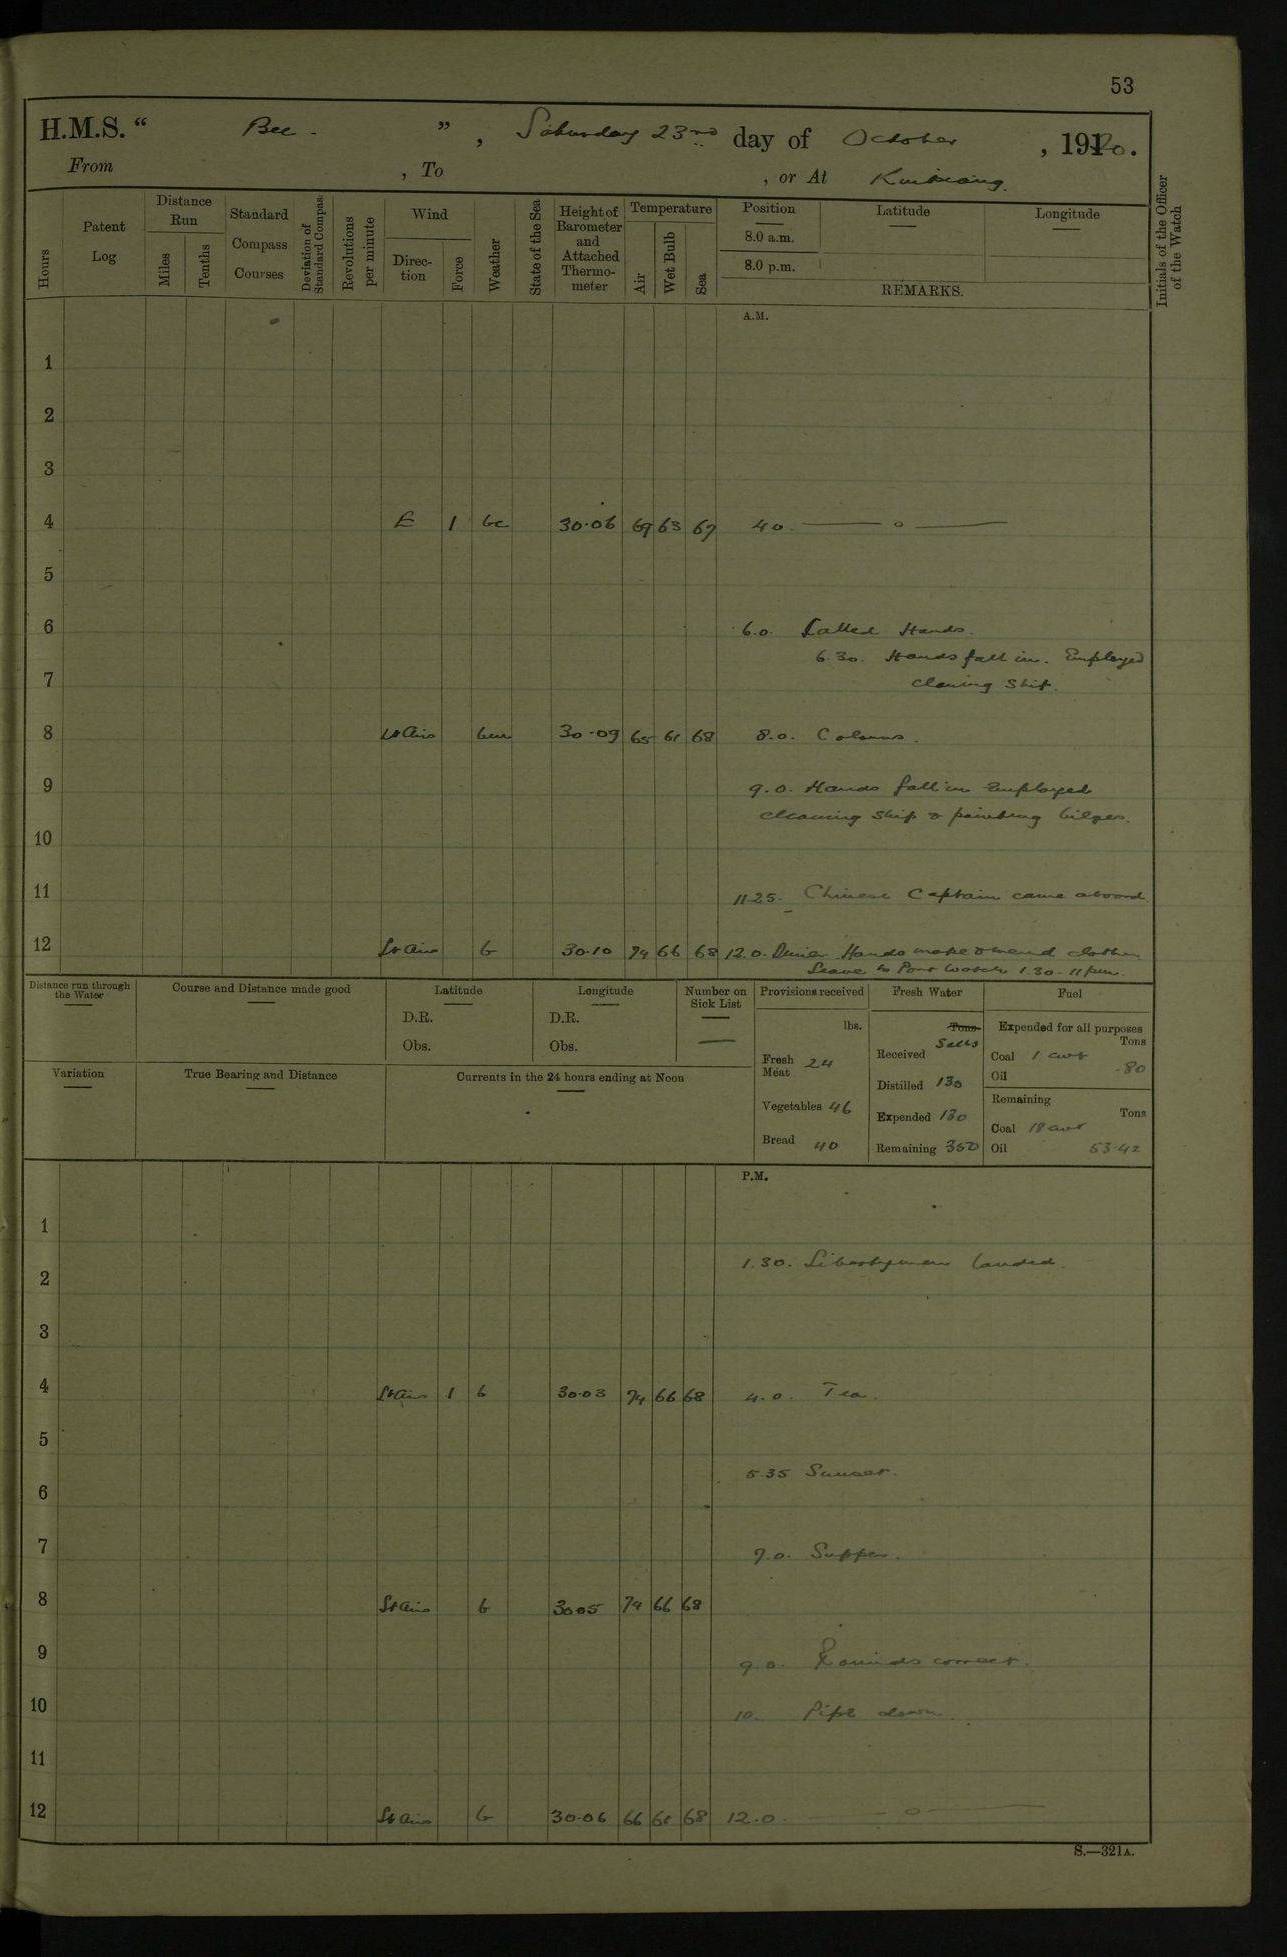 53
H.M.S. “ Bee - ” , Saturday 23rd day of October , 1920.
From , To , or At Kiukiang.
Hours
Patent Log
Distance Run
Miles
Tenths
Standard Compass Courses
Deviation of Standard Compass
Revolutions per minute
Wind
Direction
Force
Weather
State of the Sea
Height of Barometer and Attached Thermometer
Temperature
Air
Wet Bulb
Sea
Position
Latitude
Longitude
8.0 a.m.
8.0 p.m.
REMARKS.
Initials of the Officer of the Watch
A.M.
1
2
3
4 E 1 bc 30.06 69 63 67 4 0. —— o ——
5
6 6.0. Called Hands.
6.30. Hands fall in. Employed
7 cleaning Ship.
8 Lt Airs bm 30.09 65 61 68 8.0. Colours.
9 9.0. Hands fall in Employed
cleaning Ship & painting bilges.
10
11 11.25. Chinese Captain came aboard
12 Lt Airs b 30.10 74 66 68 12.0. Dinner Hands make & mend clothes
Leave to Port Watch 1.30 - 11 pm.
Distance run through the Water
Course and Distance made good
Latitude
D.R.
Obs.
Longitude
D.R.
Obs.
Number on Sick List
—
Variation
True Bearing and Distance
Currents in the 24 hours ending at Noon
Provisions received
lbs.
Fresh Meat 24
Vegetables 46
Bread 40
Fresh Water
Tons
Galls
Received
Distilled 130
Expended 130
Remaining 350
Fuel
Expended for all purposes
Tons
Coal 1 cwt
Oil .80
Remaining
Tons
Coal 18 cwt
Oil 53.42
P.M.
1
1.30. Libertymen landed.
2
3
4 Lt Airs 1 b 30.03 74 66 68 4.0. Tea.
5
5.35 Sunset.
6
7 7.0. Supper.
8 Lt Airs b 30.05 74 66 68
9 9.0. Rounds correct.
10 10. Pipe down.
11
12 Lt Airs b 30.06 66 61 68 12.0. —— o ——
S.—321A.